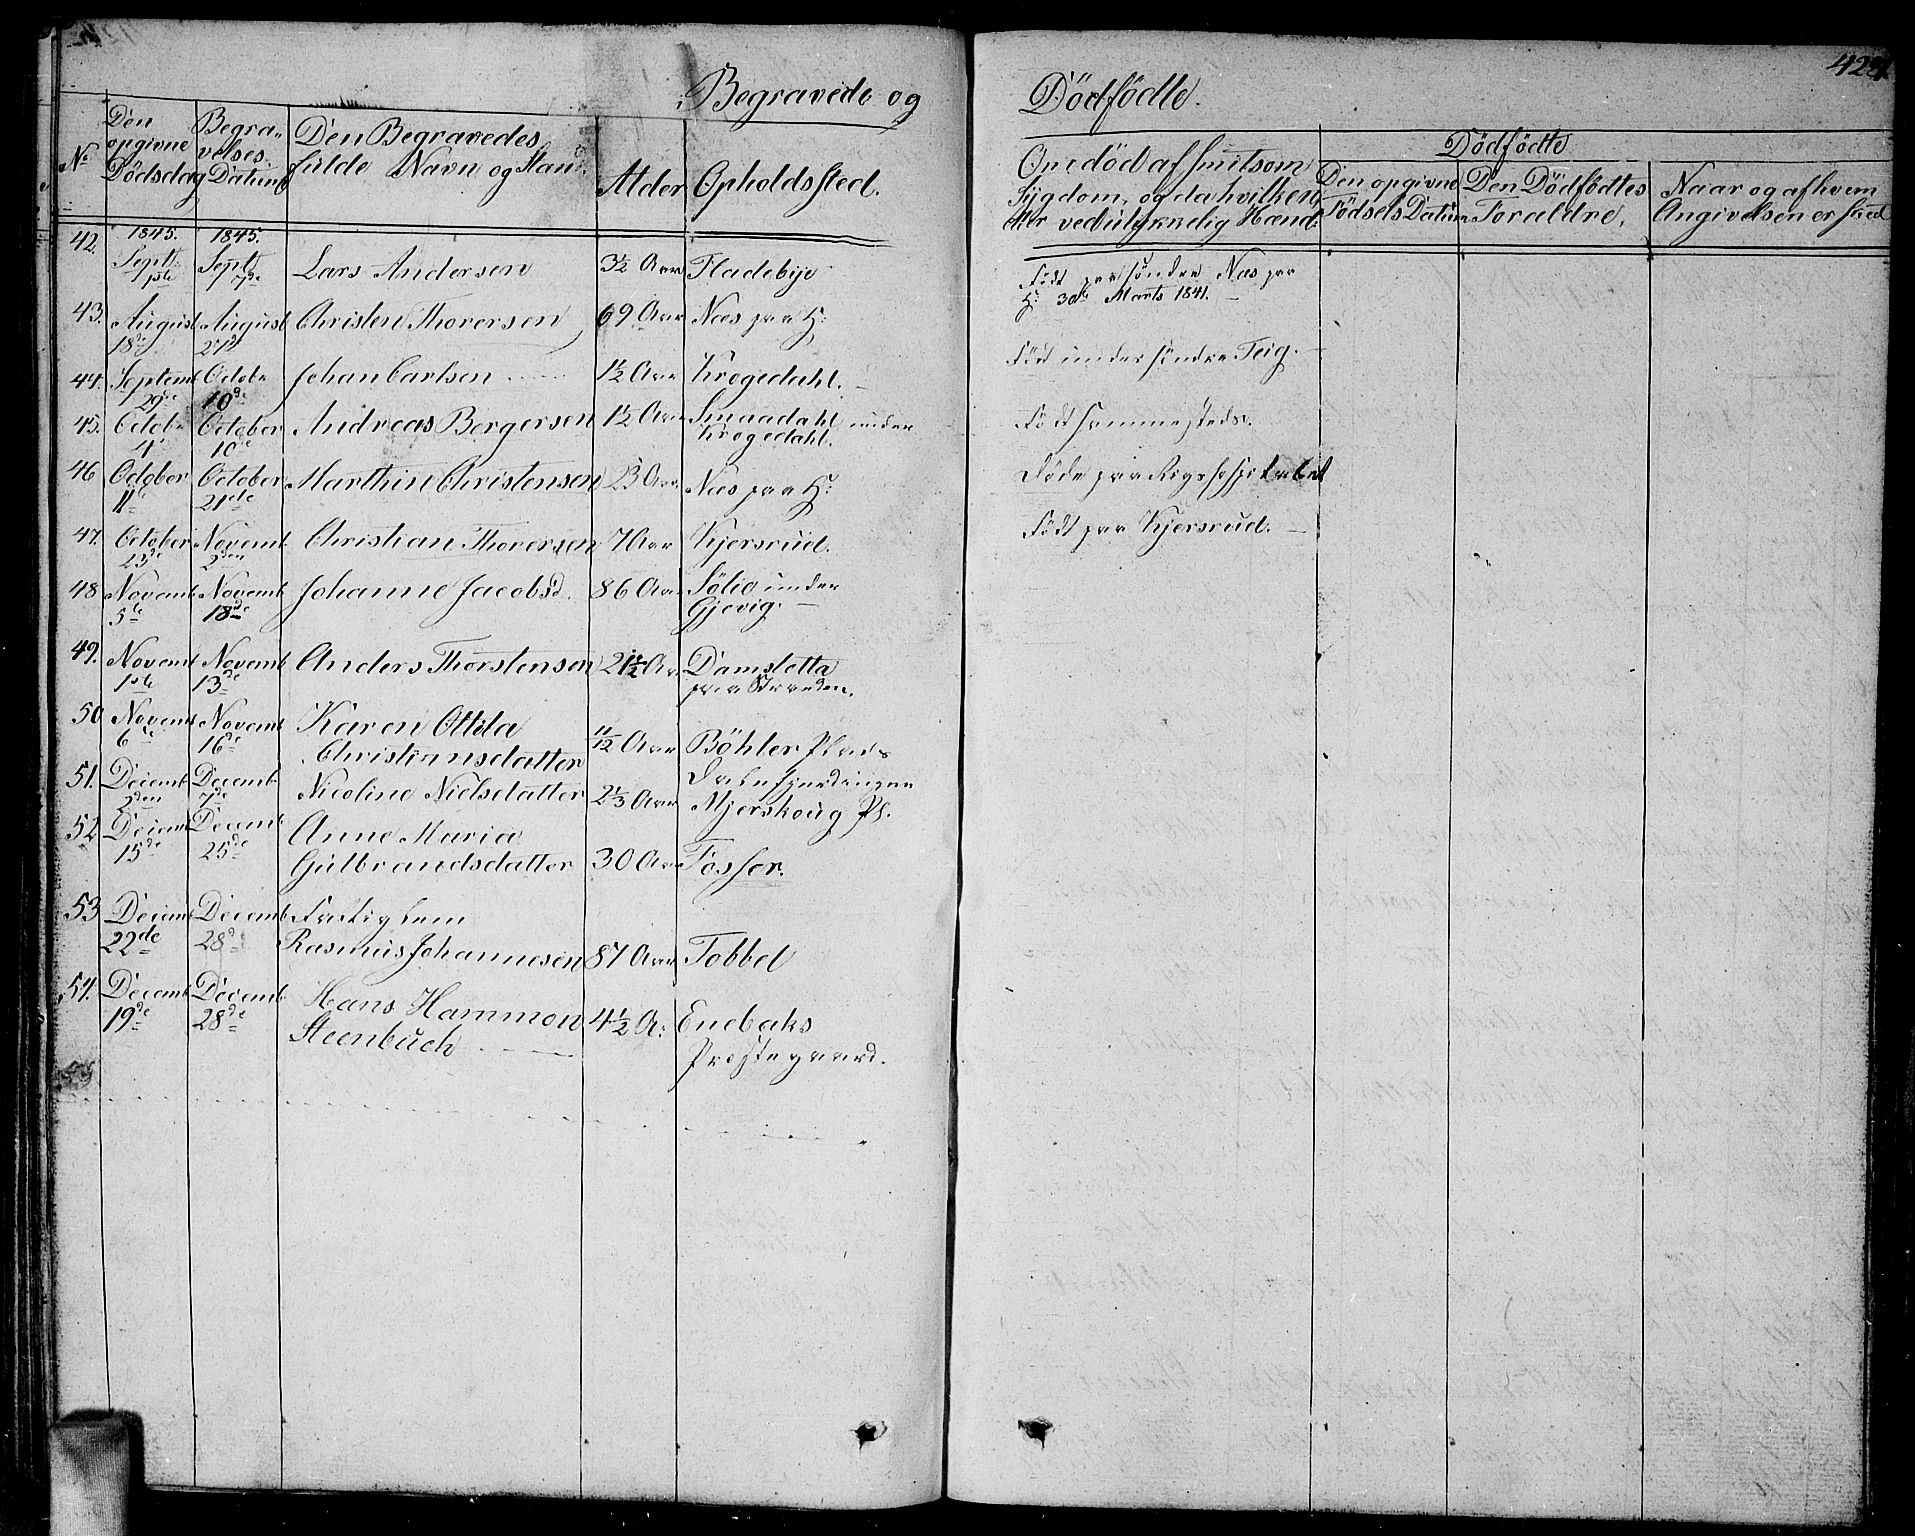 Begravede og
Dödfödte.
428
No
Den opgivne Dödsdag
Begravelses Datum
Den Begravedes fulde Navn og Stan
Alder
Opholdssted.
Om död af smitsom Sygdom, og da hvilken eller ved ulykkelig Hænd:
Dödfödte
Den opgivne Födsels Datum
Den Dödfödtes Foraldre.
Naar og af hvem Angivelsen er skeed
42. 1845. Septb: 1ste 1845. Septb 7de Lars Andersen 3½ Aar Fladebye Födt paa söndre Næs paa H: 30te Marts 1841.
43. August 18de August 27de Christen Thorersen 69 Aar Næs paa H:
44. Septemb 29de Octob 10de Johan Carlsen 1½ Aar Krogedahl. Födt under söndre Teig.
45. Octob 4de October 10de Andreas Bergersen 1½ Aar Smaadahl under Krogedahl. Födt sammesteds.
46 October 11te October 21de Marthin Christensen 23 Aar Næs paa H: Döde paa Rigshospitalet
47. October 23de Novemb 2den Christian Thorersen 7 Aar Kjersrud. Födt paa Kjersrud.
48 Novemb 5te Novemb 18de Johanne Jacobsd. 86 Aar Sölia under Gjevig.
49. Novemb 1ste Novemb 13de Anders Thorstensen 2½ Aar Damsletta paa Stranden.
50 Novemb 6te Novemb 16de Karen Ottila Christiansdatter 11/12 Aar Böhler Plads
51. Decemb 2den Decemb 7de Nicoline Nielsdatter 2⅓ Aar Mjerskoug Pl.
52 Decemb 15de Decemb 25de Anne Maria Gulbrandsdatter 30 Aar Fosser.
53 Decemb 22de Decemb 28de Fattiglem Rasmus Johannesen 87 Aar Tobbel
54. Decemb 19de Decemb 28de Hans Hammon Steenbuch 4½ A: Enebaks Præstegaard.
55